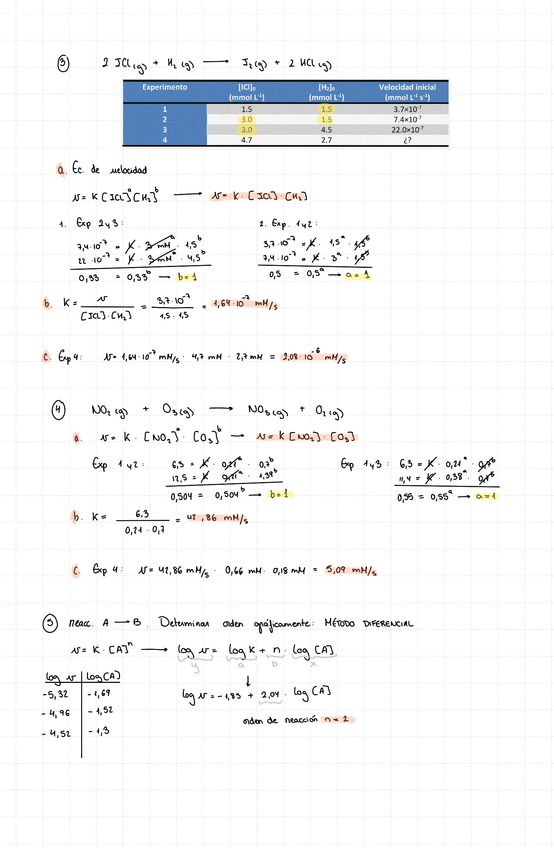 ③ 2 ICl(g) + H₂(g) ⟶ I₂(g) + 2 HCl(g)
Experimento [ICl]₀ (mmol L⁻¹) [H₂]₀ (mmol L⁻¹) Velocidad inicial (mmol L⁻¹ s⁻¹)
1 1.5 1.5 3.7×10⁻⁷
2 3.0 1.5 7.4×10⁻⁷
3 3.0 4.5 22.0×10⁻⁷
4 4.7 2.7 ¿?
a. Ec. de velocidad
v = K [ICl]ᵃ [H₂]ᵇ ⟶ v = K · [ICl] · [H₂]
1. Exp 2y3:
7,4·10⁻⁷ = K · 3 mMᵃ · 1,5ᵇ
22·10⁻⁷ = K · 3 mMᵃ · 4,5ᵇ
0,33 = 0,33ᵇ ⟶ b=1
2. Exp. 1y2:
3,7·10⁻⁷ = K · 1,5ᵃ · 1,5ᵇ
7,4·10⁻⁷ = K · 3ᵃ · 1,5ᵇ
0,5 = 0,5ᵃ ⟶ a=1
b. K = v / [ICl]·[H₂] = 3,7·10⁻⁷ / 1,5 · 1,5 = 1,64·10⁻⁷ mM/s
c. Exp 4: v = 1,64·10⁻⁷ mM/s · 4,7 mM · 2,7 mM = 2,08·10⁻⁶ mM/s
④ NO₂(g) + O₃(g) ⟶ NO₃(g) + O₂(g)
a. v = K · [NO₂]ᵃ · [O₃]ᵇ ⟶ v = K [NO₂] · [O₃]
Exp 1y2: 6,3 = K · 0,21ᵃ · 0,7ᵇ
12,5 = K · 0,21ᵃ · 1,39ᵇ
0,504 = 0,504ᵇ ⟶ b=1
Exp 1y3: 6,3 = K · 0,21ᵃ · 0,7ᵇ
11,4 = K · 0,38ᵃ · 0,7ᵇ
0,55 = 0,55ᵃ ⟶ a=1
b. K = 6,3 / 0,21 · 0,7 = 42,86 mM/s
c. Exp 4: v = 42,86 mM/s · 0,66 mM · 0,18 mM = 5,09 mM/s
⑤ reacc. A ⟶ B. Determinar orden gráficamente: MÉTODO DIFERENCIAL
v = K · [A]ⁿ ⟶ log v = log K + n · log [A]
y a b x
log v log [A]
-5,32 -1,69
-4,96 -1,52
-4,52 -1,3
↓
log v = -1,85 + 2,04 · log [A]
orden de reacción n = 2